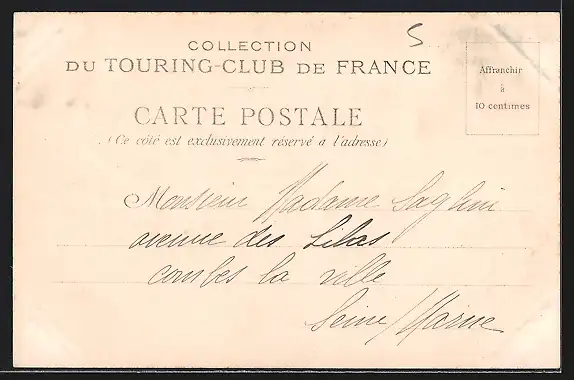 COLLECTION
DU TOURING-CLUB DE FRANCE
5
Affranchir
à
10 centimes
CARTE POSTALE
(Ce côté est exclusivement réservé à l'adresse)
Monsieur Madame
avenue des Lilas
combes la ville
Seine/Marne